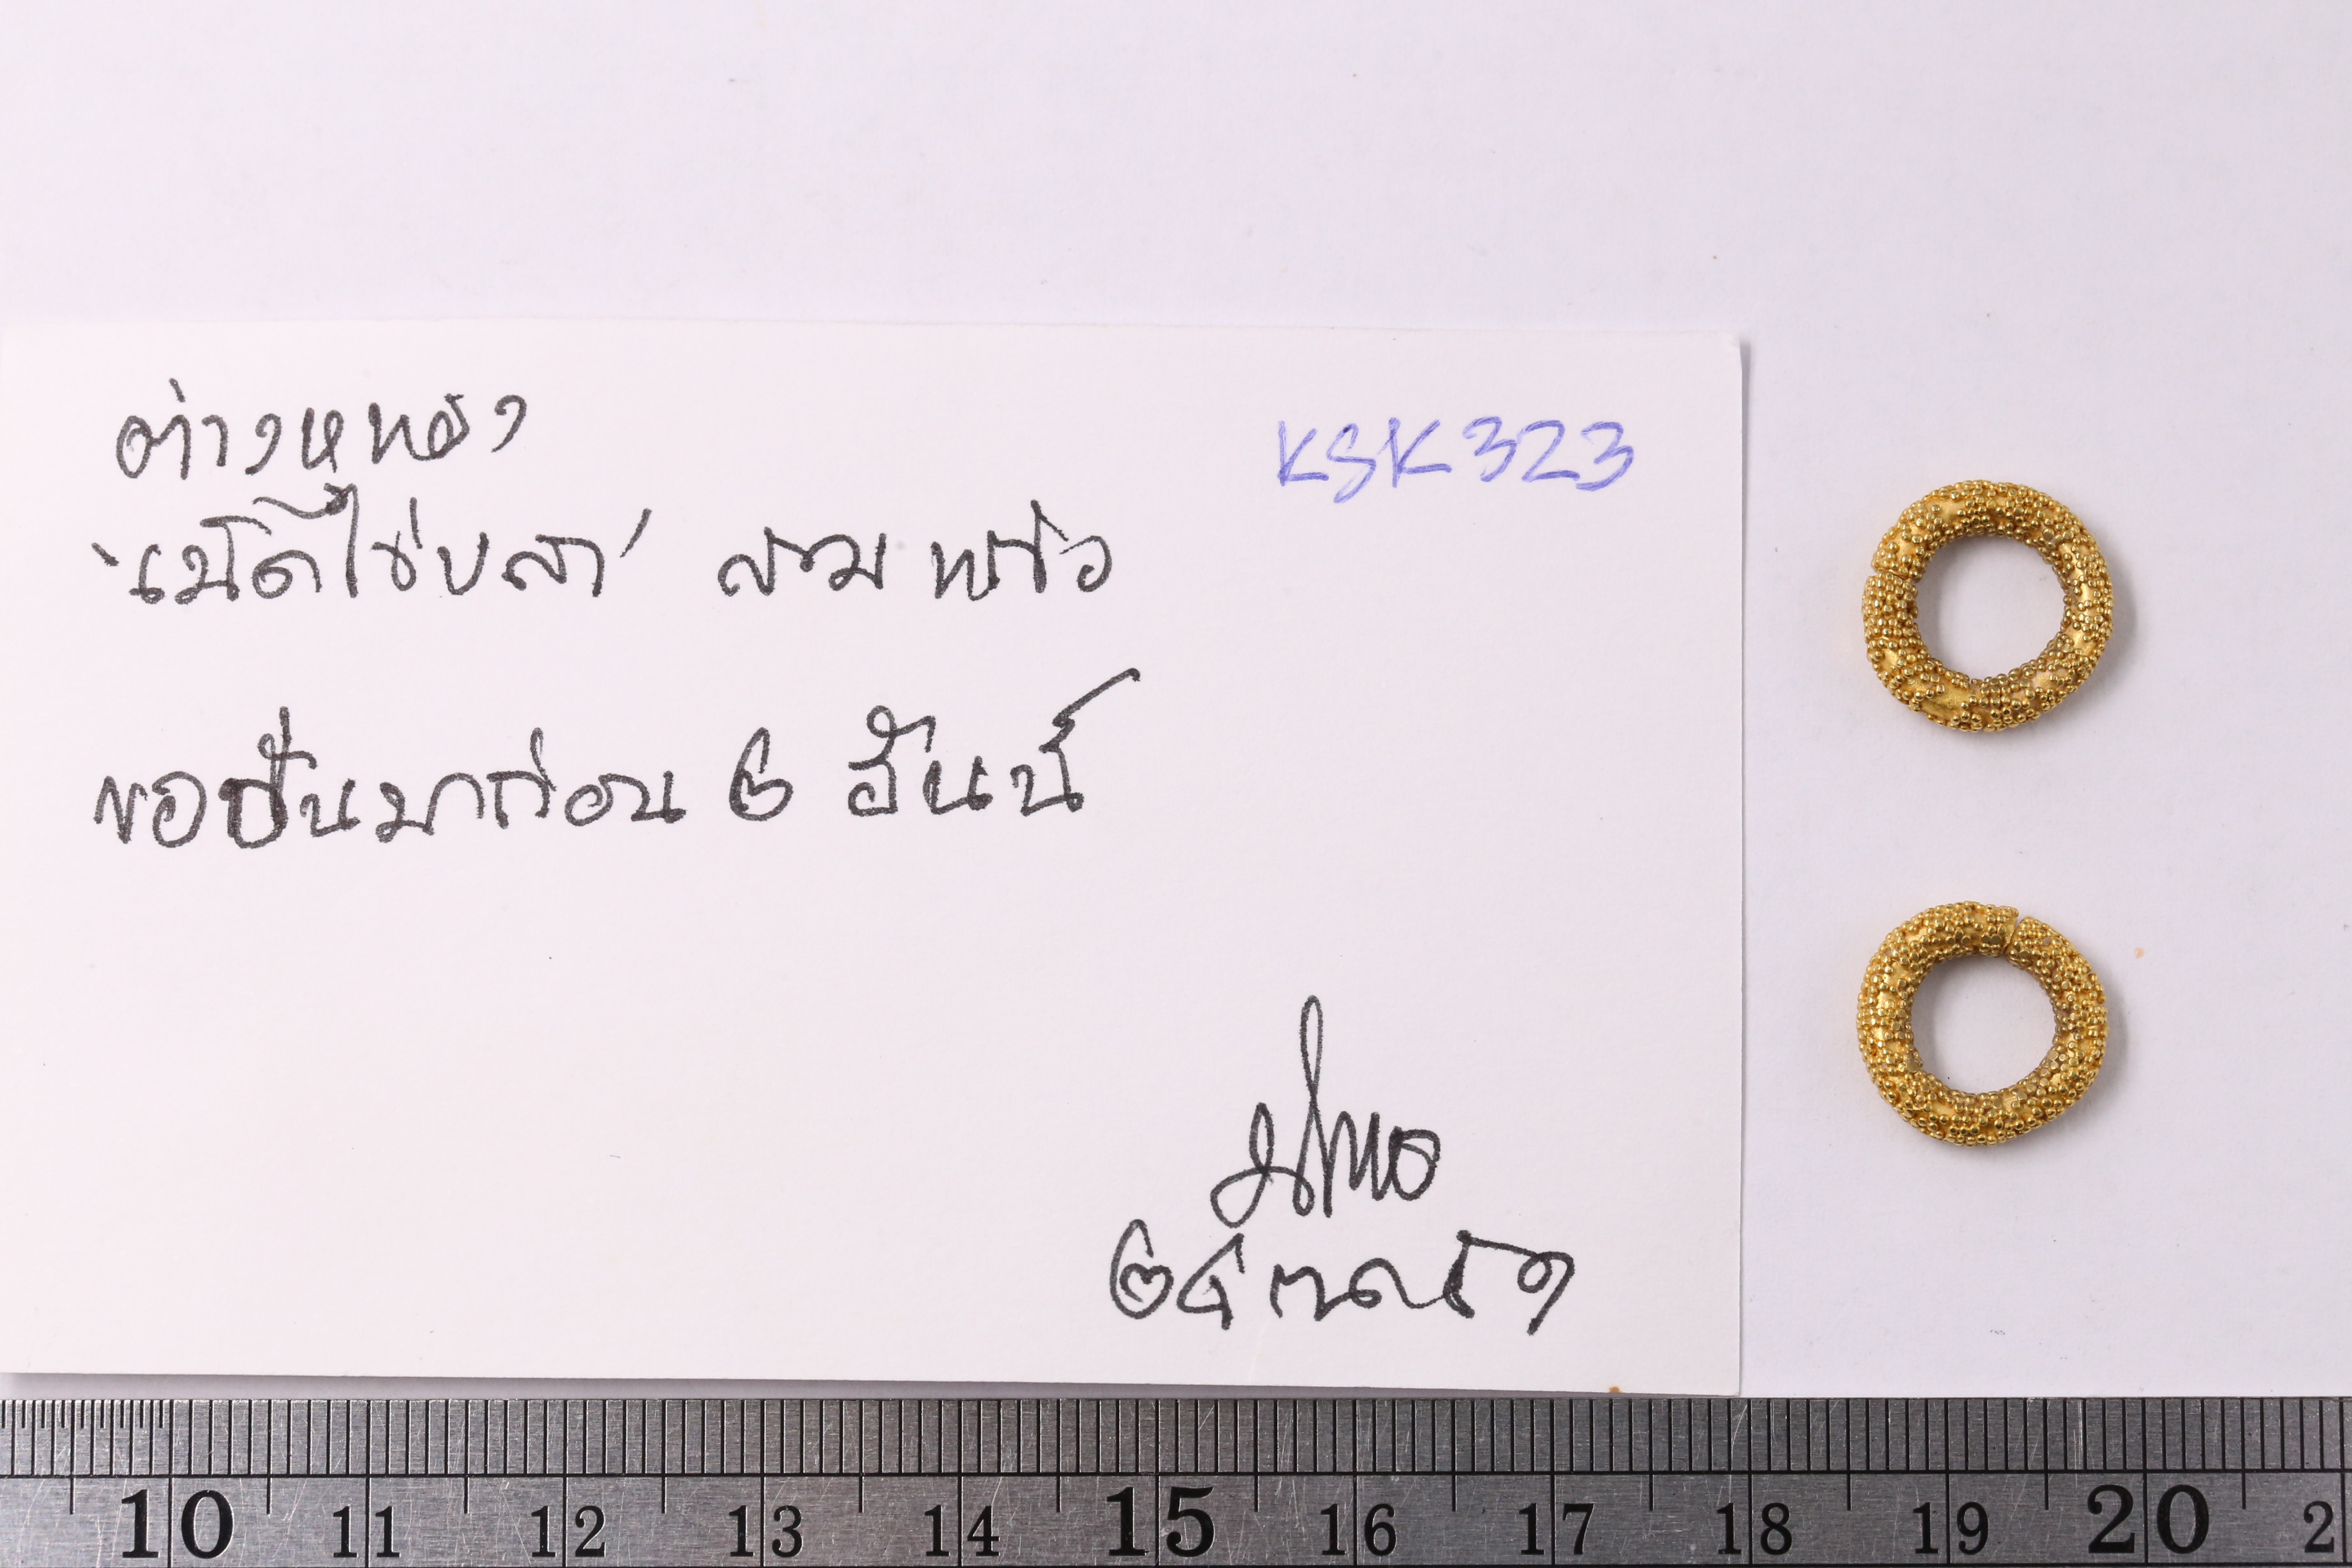 ต่างหูทอง
KSK323
'เม็ดไข่ปลา' สามแก้ว
ขอยืมมาก่อน ๒ อันน์
๒๔ กค
10 11 12 13 14 15 16 17 18 19 20 2